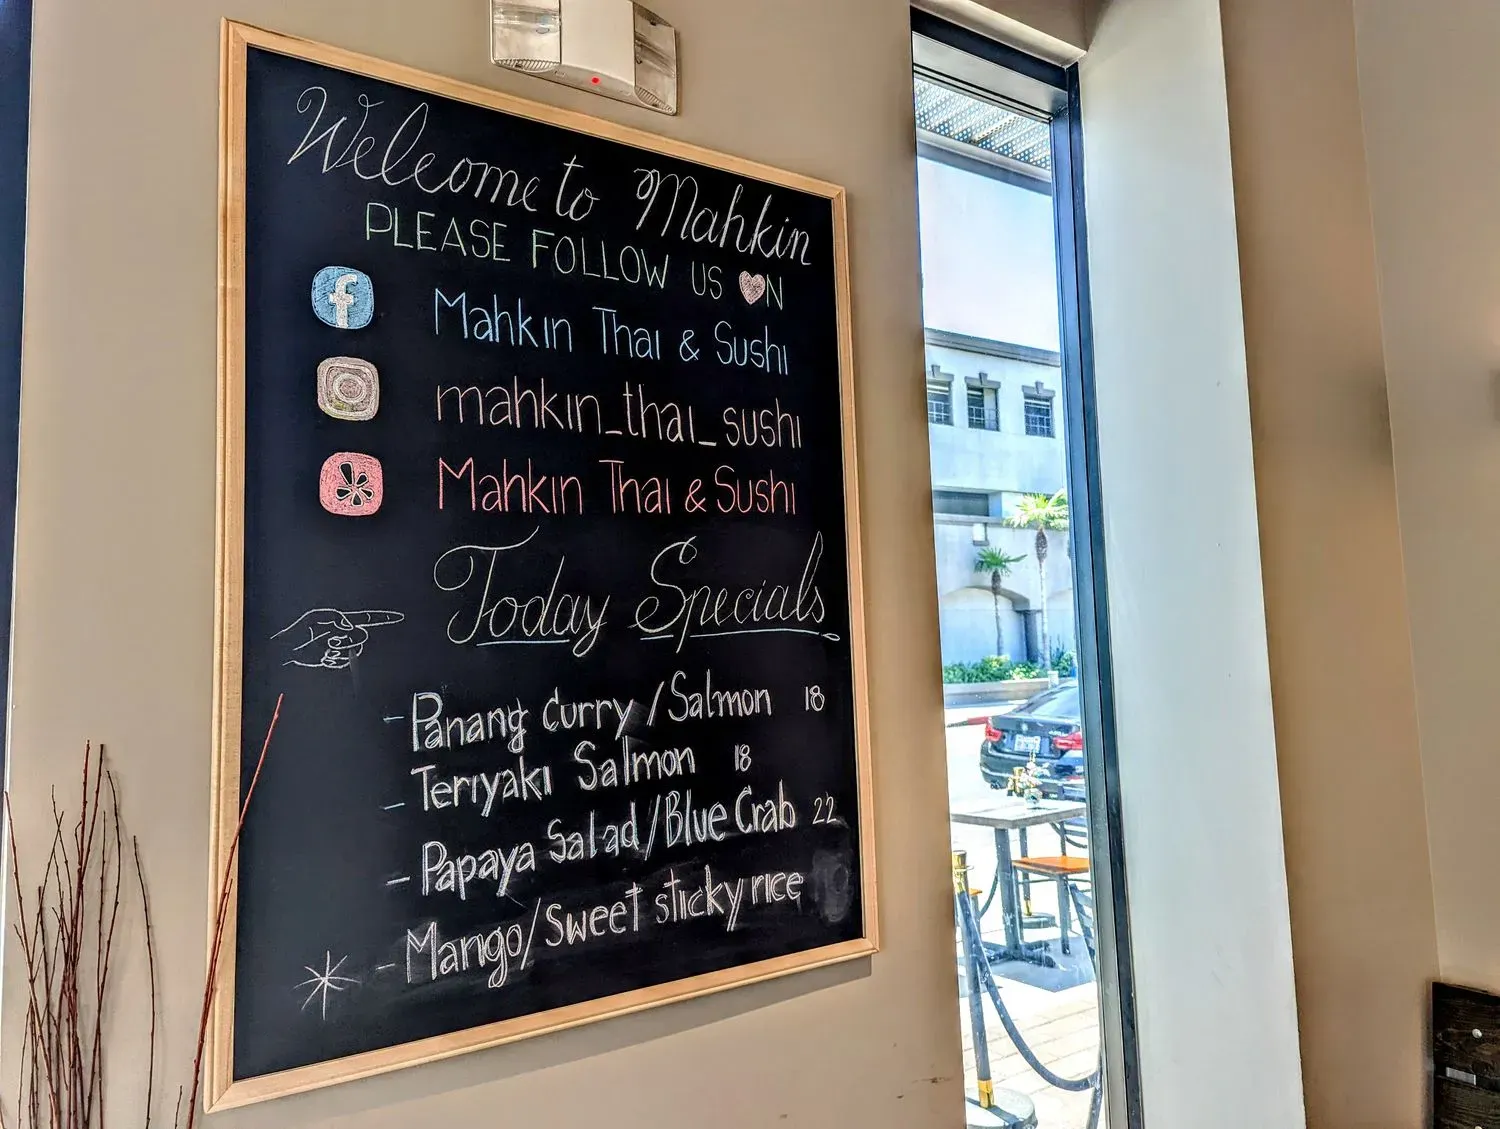 Welcome to Mahkin
PLEASE FOLLOW US ON
f Mahkin Thai & Sushi
mahkin_thai_sushi
Mahkin Thai & Sushi
Today Specials
- Panang Curry / Salmon 18
- Teriyaki Salmon 18
- Papaya Salad / Blue Crab 22
- Mango / Sweet sticky rice